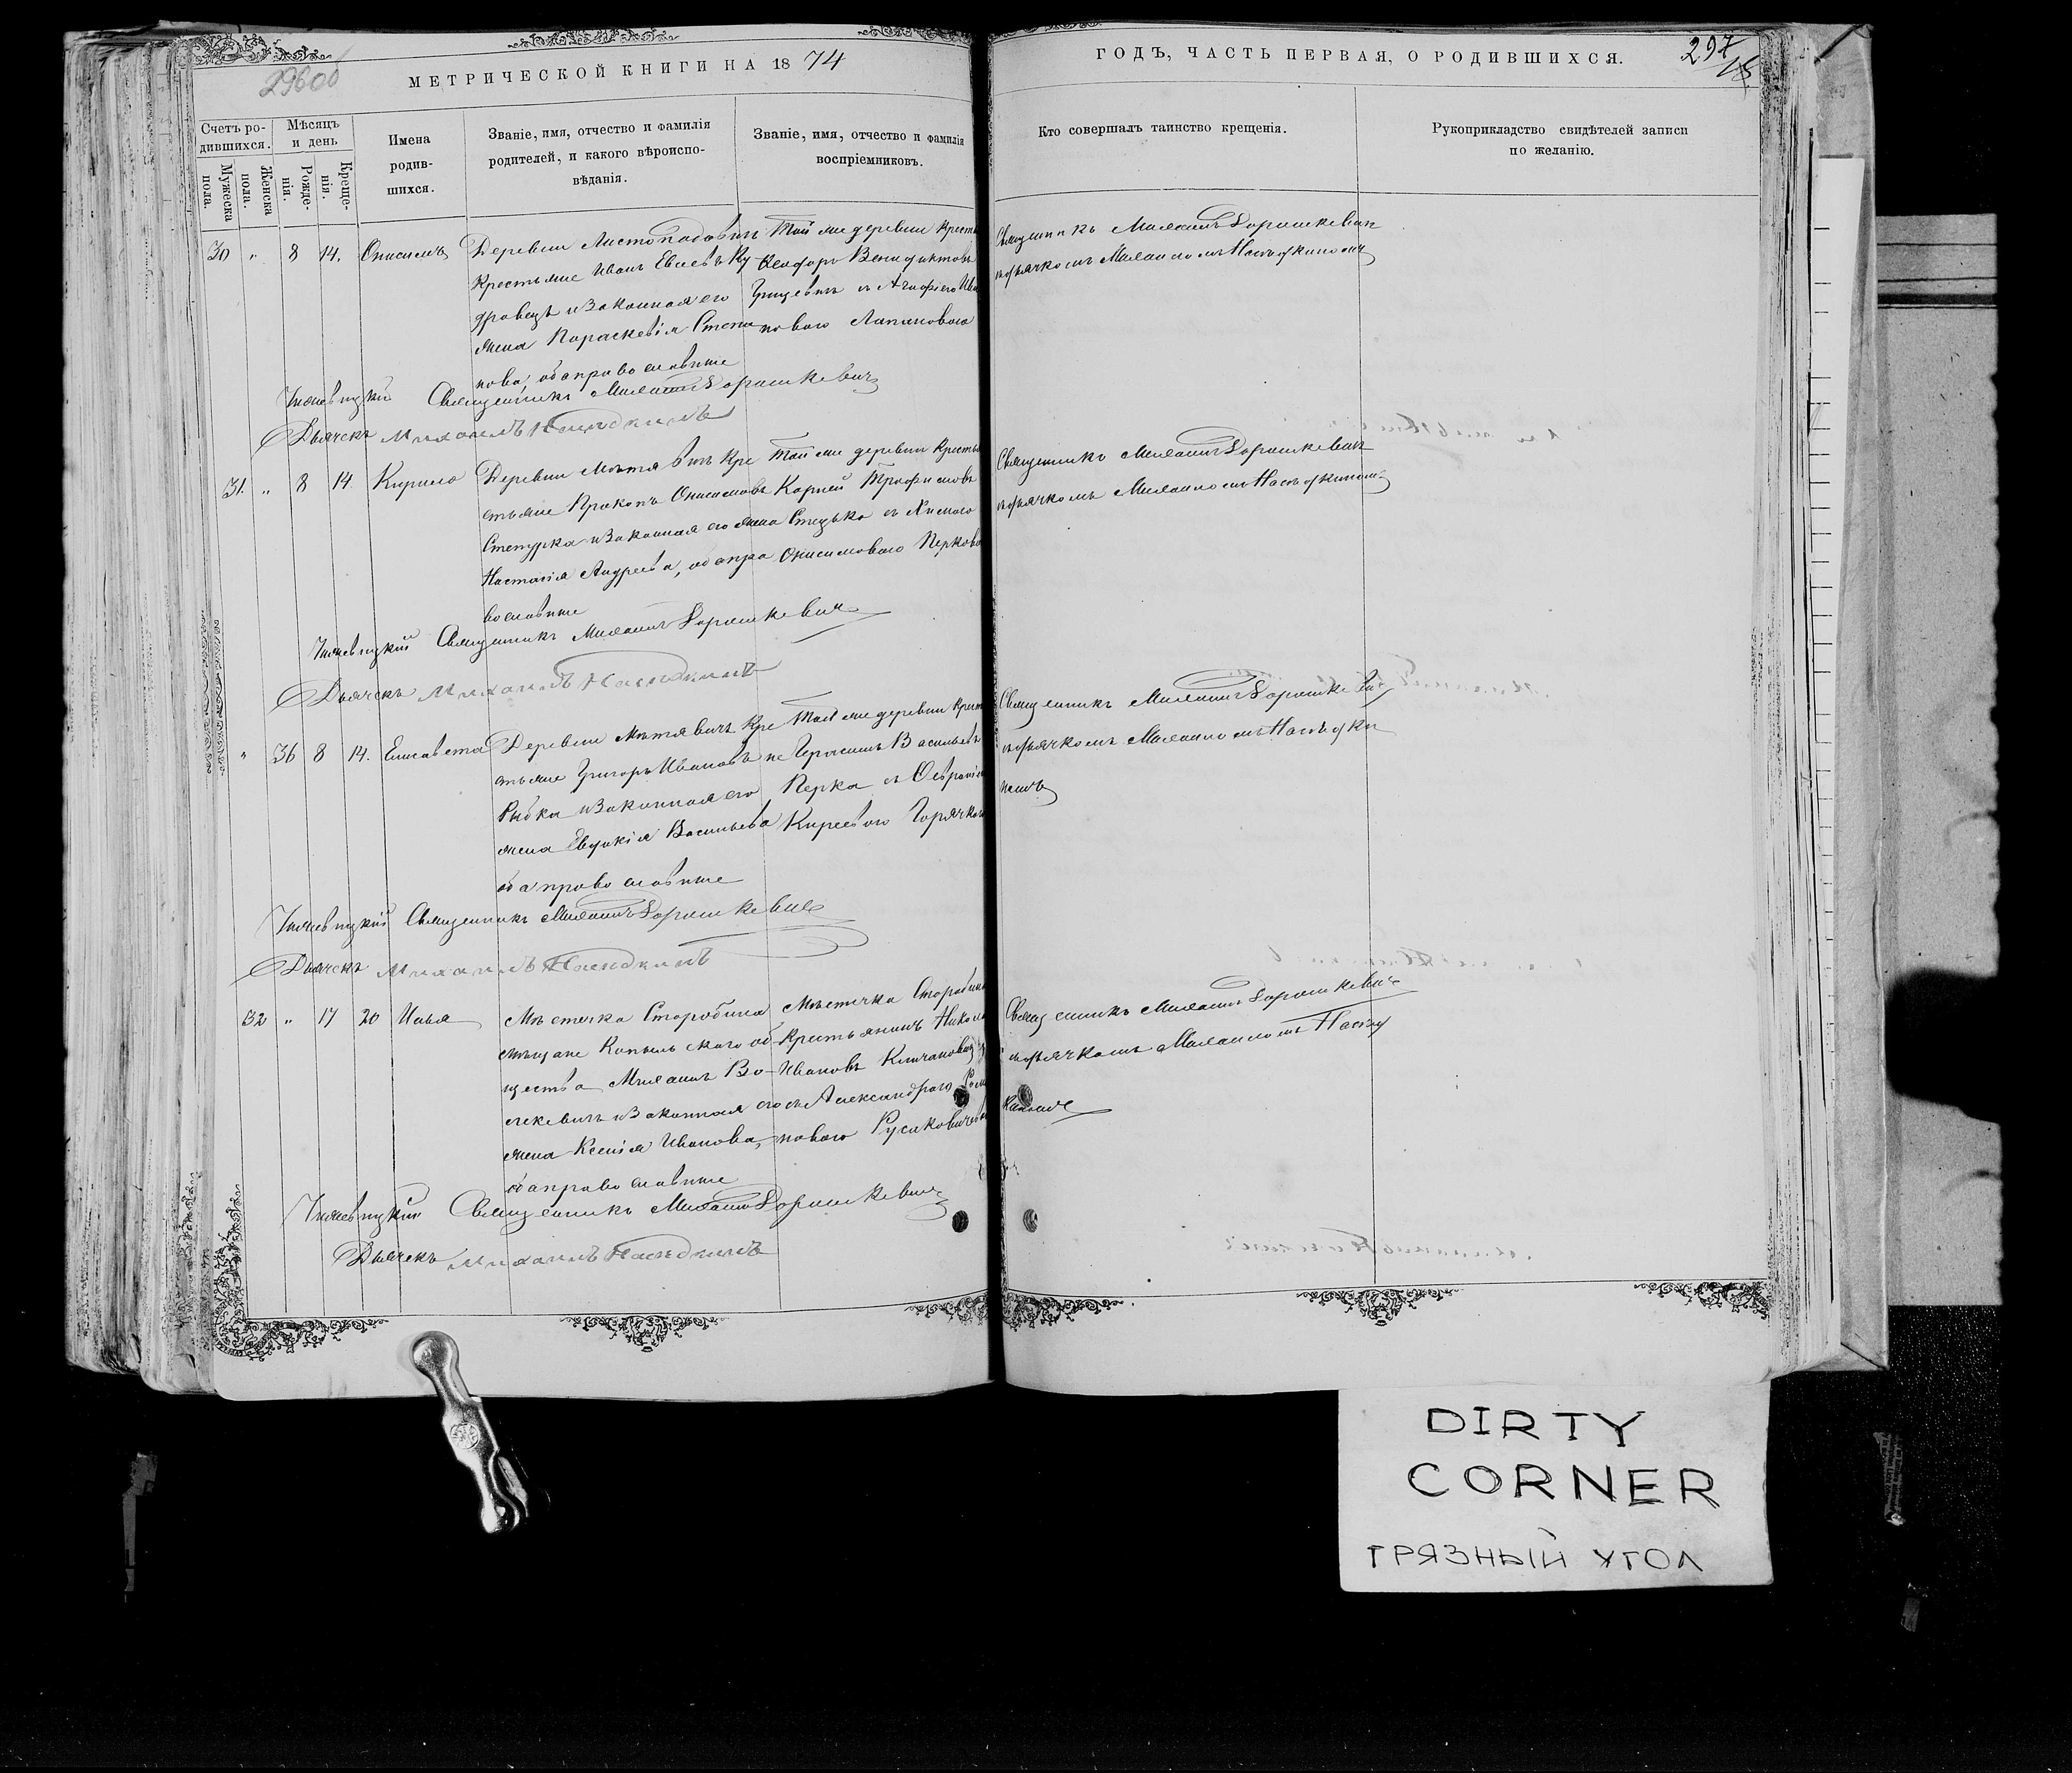 296об
МЕТРИЧЕСКОЙ КНИГИ НА 18 74
ГОДЪ, ЧАСТЬ ПЕРВАЯ, О РОДИВШИХСЯ.
297
Счетъ ро-
дившихся.
Мужеска
пола.
Женска
пола.
Мѣсяцъ
и день
Рожде-
нія.
Креще-
нія.
Имена
родив-
шихся.
Званіе, имя, отчество и фамилія
родителей, и какого вѣроиспо-
вѣданія.
Званіе, имя, отчество и фамилія
воспріемниковъ.
Кто совершалъ таинство крещенія.
Рукоприкладство свидѣтелей записи
по желанію.
30 " 8 14. Онисимъ
Деревни Листопадовичъ
Крестьяне Иванъ Евсеевъ Ку-
дравецъ и законная его
жена Параскевія Степа
нова, оба православные
Той же деревни Кресть
Венидиктовъ
Грицевичъ с
нового Лапановаго
Священникъ Михаилъ Дорошкевич
и дьячкомъ Михаиломъ Насѣдкиномъ
Священникъ Михаилъ Дорошкевичъ
Дьячекъ Михаилъ Насѣдкинъ
31. " 8 14 Кирило
Деревни Метявичъ Кре
стьяне Прокопъ Онисимовъ
Степурка и законная его жена
Настасія Андреева, оба пра
вославные
Той же деревни Кресть
Карней Трофимовъ
Стецько с
Онисимоваго Перково
Священникъ Михаилъ Дорошкевич
и дьячкомъ Михаиломъ Насѣдкиномъ
Священникъ Михаилъ Дорошкевич
Дьячекъ Михаилъ Насѣдкинъ
" 36 8 14. Елисавета
Деревни Метявичъ Кре
стьяне Григорь Ивановъ
Рыбка и законная его
жена Евдокія Васильева
оба православные
Той же деревни Крест
не Герасимъ Васильевъ
Перка с
Киреевою Горячко
Священникъ Михаилъ Дорошкевич
и дьячкомъ Михаиломъ Насѣдки
номъ
Священникъ Михаилъ Дорошкевич
Дьячекъ Михаилъ Насѣдкинъ
32 " 17 20 Илья
Мѣстечка Старобина
мѣщане Копыльского об-
щества Михаилъ Во-
лкевичъ и законная его
жена Ксенія Иванова,
оба православные
Мѣстечка Старобина
Крестьянинъ Никола
Ивановъ
с Александрою Рома
новою Русаковичево
Священникъ Михаилъ Дорошкевич
и дьячкомъ Михаиломъ Насѣд
киномъ
Священникъ Михаилъ Дорошкевич
Дьячекъ Михаилъ Насѣдкинъ
DIRTY
CORNER
ГРЯЗНЫЙ УГОЛ